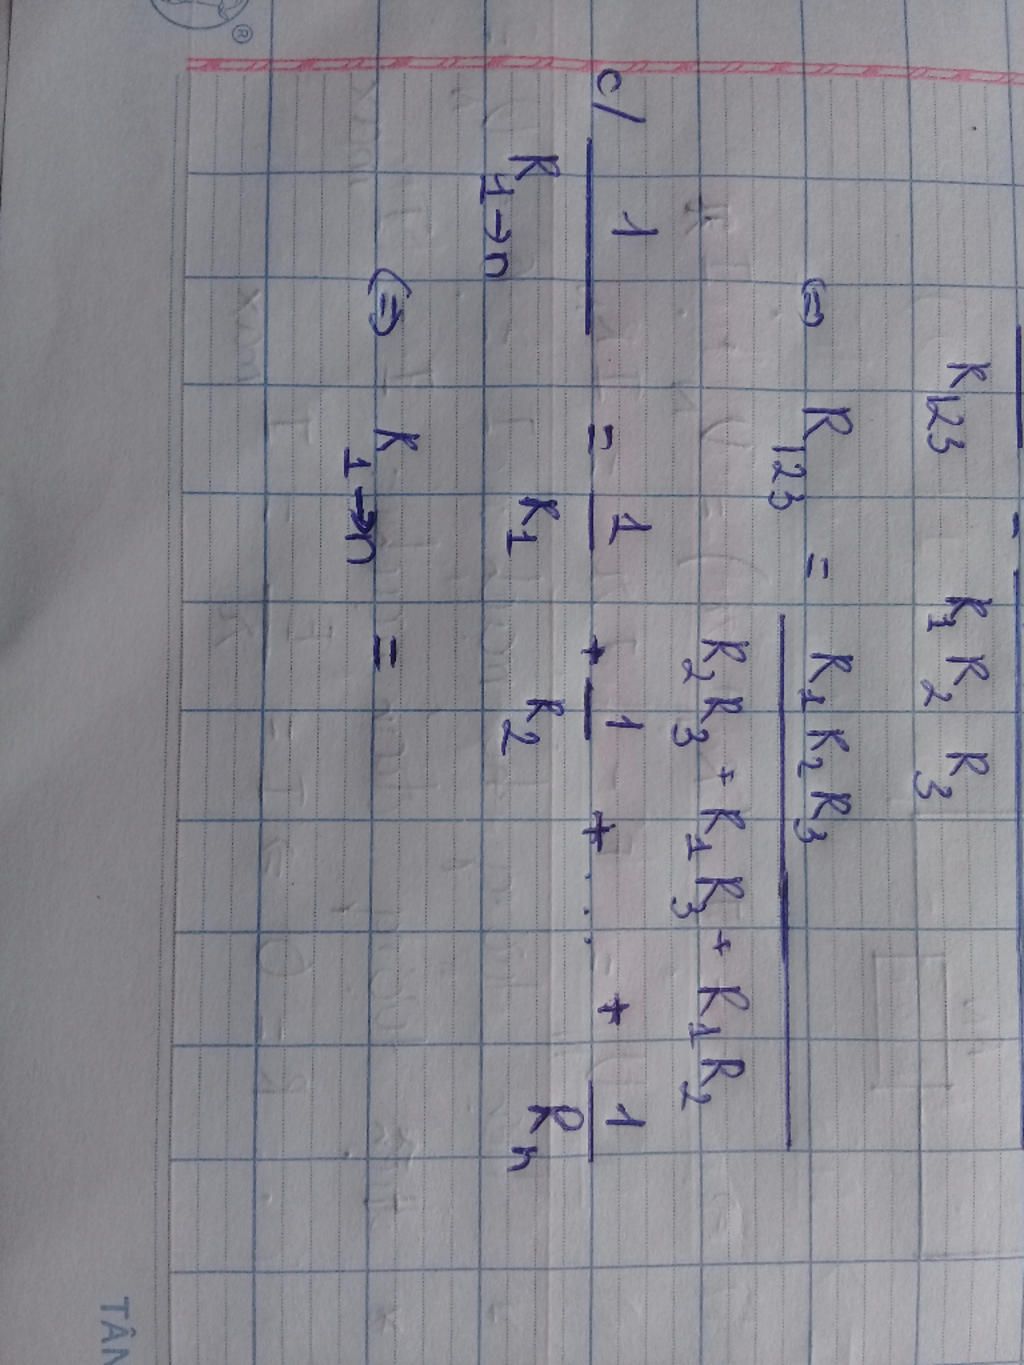 R₁₂₃   R₁ R₂ R₃
⇔ R₁₂₃ = R₁R₂R₃ / R₂R₃ + R₁R₃ + R₁R₂
c/ 1 / R₁→n = 1 / R₁ + 1 / R₂ + ... + 1 / Rₙ
⇔ R₁→n =
TÂN
®